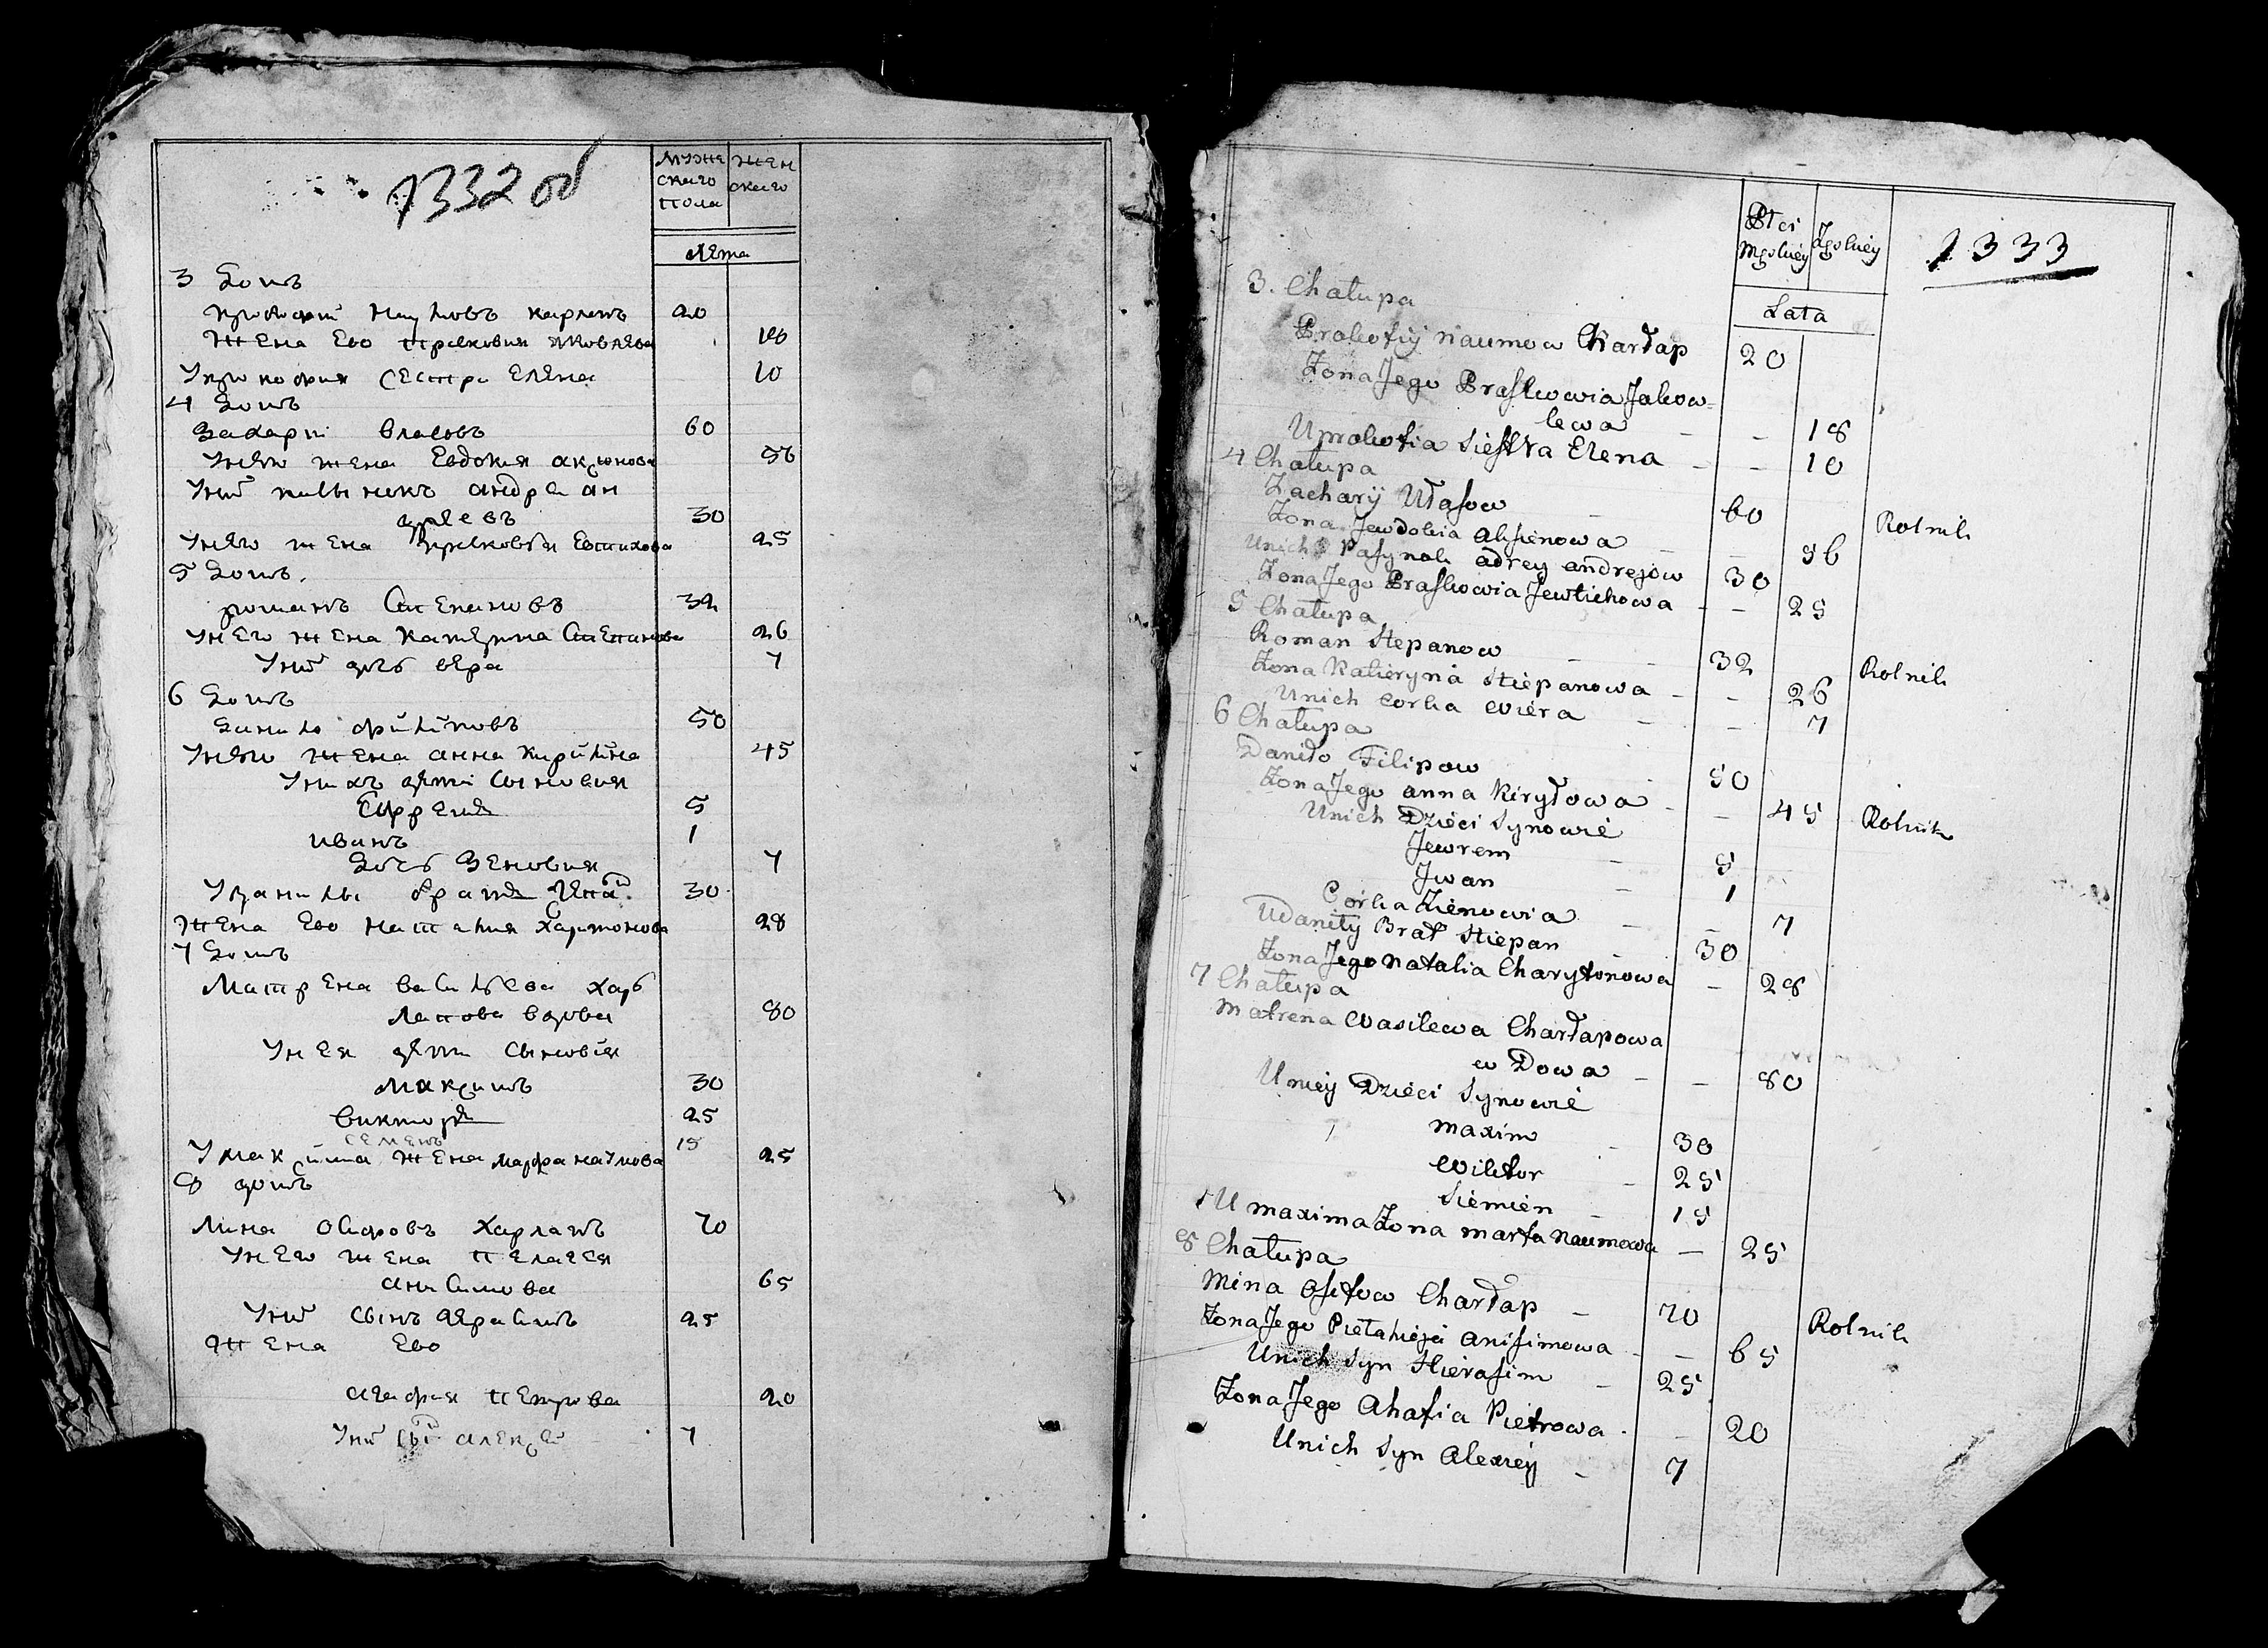 1332 об
мужескаго пола
женскаго
лета
3 Домъ
прокофий Наумовъ харлапъ 20
Жена Ево прасковия яковлева 18
Упрокофия сестра Елена 10
4 Домъ
Захарий Власовъ 60
Унего жена Евдокия
56
Уних пасынокъ андреи ан
дреевъ 30
Унего жена прасковья Евтихова 25
5 Домъ
романъ Степановъ 32
У него жена катерина Степанова 26
Уних дочь вера 7
6 Домъ
Данило филиповъ 50
Унего жена анна кирилина 45
Унихъ дети сыновия
Ефремъ 5
иванъ 1
Дочь Зеновия 7
Уданилы братъ 30
Жена Ево наталия харитонова 28
7 Домъ
Матрена васильева хар
лапова вдова 80
У нея дети сыновия
максимъ 30
викторъ 25
семенъ 15
У максима жена марфа наумова 25
8 домъ
Мина осифовъ харлапъ 70
У него жена пелагея
анисимова 65
Уних сынъ герасимъ 25
Жена Ево
агафия петрова 20
Уних сынъ алексей 7
1333
Płci
Męskiéy
Żeńskiéy
Lata
3. Chałupa
Prokofiy Naumow Charłap 20
Żona Jego Praskowia Jakow=
lewa - - 18
U prokofia Siestra Elena - - 10
4 Chałupa
Zacharÿ Własow - 60 Rolnik
Żona Jewdokia Axienowa - - 56
Unich Pasynok adrey andrejów 30
Żona Jego Praskowia Jewtichowa - - 25
5 Chałupa
Roman Stepanow - - 32 Rolnik
Żona Katieryna Stiepanowa - - 26
Unich Corka Wiéra - - 7
6 Chałupa
Daniło Filipow 50
Żona Jego anna Kiryłowa - - 45 Rolnik
Unich Dzieci Synowié
Jewrem - 5
Jwan - 1
Corka Zienowia - - 7
Udaniły Brat Stiepan - 30
Żona Jego Natalia Charytonowa - 28
7 Chałupa
Matrena Wasilewa Charłapowa
w Dowa - - 80
U niéy Dziéci Synowié
maxim - 30
Wiktor - 25
Siémién - 15
U maxima Żona marfa Naumowa - 25
8 Chałupa
Mina Osifow Charłap - 70 Rolnik
Żona Jego Pietahieja anisimowa - - 65
Unich Syn Hierasim - 25
Żona Jego Ahafia Pietrowa - - 20
Unich Syn Alexiéy - 7